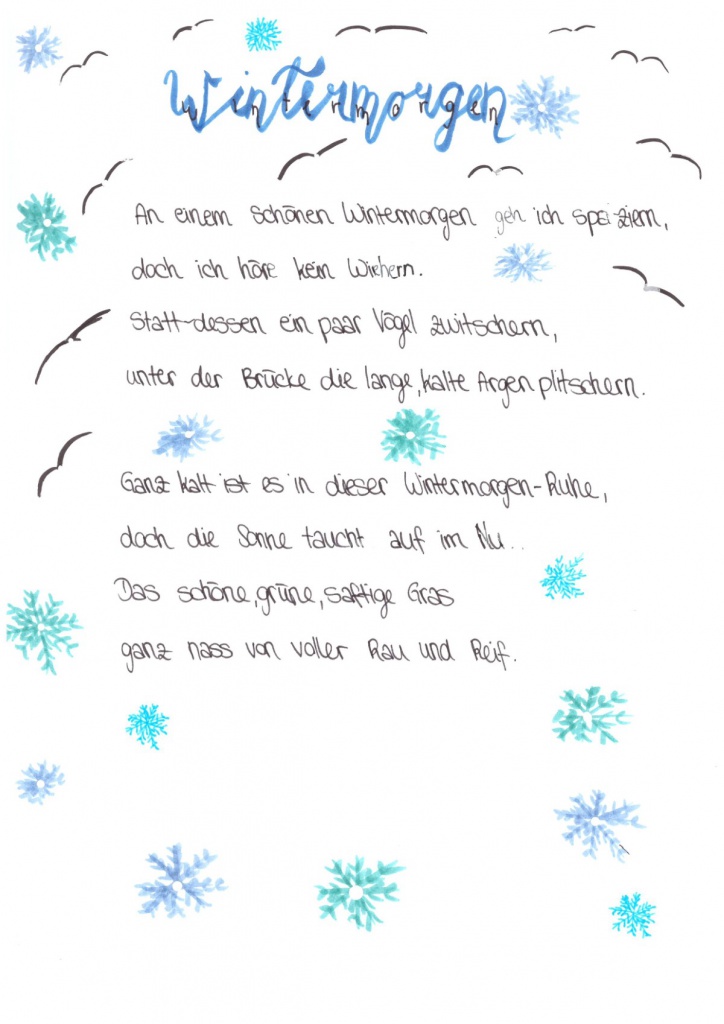 Wintermorgen
An einem schönen Wintermorgen geh ich spei-ziern,
doch ich höre kein Wiehern.
Statt-dessen ein paar Vögel zwitschern,
unter der Brücke die lange, kalte Argen plitschern.
Ganz kalt ist es in dieser Wintermorgen-Ruhe,
doch die Sonne taucht auf im Nu..
Das schöne, grüne, saftige Gras
ganz nass von voller Rau und Reif.